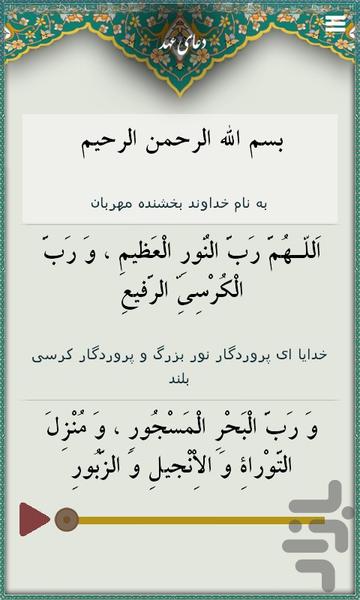 دعای عهد
بسم الله الرحمن الرحیم
به نام خداوند بخشنده مهربان
اَللّـهُمَّ رَبَّ النُّورِ الْعَظیمِ ، وَ رَبَّ
الْكُرْسِىِّ الرَّفیعِ
خدایا ای پروردگار نور بزرگ و پروردگار کرسی
بلند
وَ رَبَّ الْبَحْرِ الْمَسْجُورِ ، وَ مُنْزِلَ
التَّوْراةِ وَ الاِْنْجیلِ وَ الزَّبُورِ
بازار